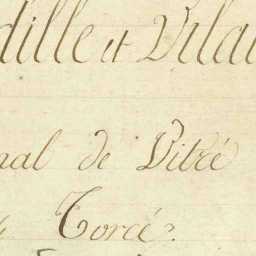 dille et Vilai
nal de Vitré
Torcé.